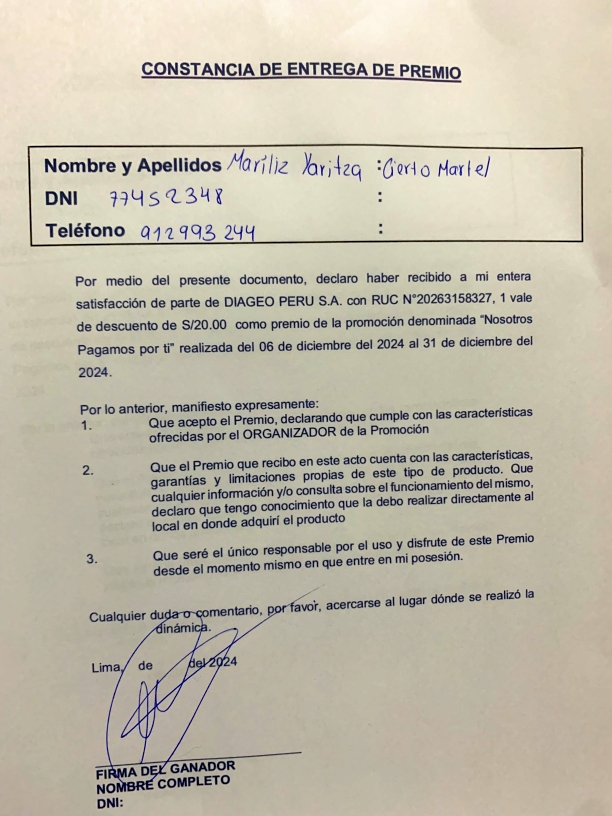 CONSTANCIA DE ENTREGA DE PREMIO
Nombre y Apellidos Maríliz Yaritza : Cierto Martel
DNI 77452348 :
Teléfono 912993244 :
Por medio del presente documento, declaro haber recibido a mi entera
satisfacción de parte de DIAGEO PERU S.A. con RUC N°20263158327, 1 vale
de descuento de S/20.00 como premio de la promoción denominada "Nosotros
Pagamos por ti" realizada del 06 de diciembre del 2024 al 31 de diciembre del
2024.
Por lo anterior, manifiesto expresamente:
1. Que acepto el Premio, declarando que cumple con las características
ofrecidas por el ORGANIZADOR de la Promoción
2. Que el Premio que recibo en este acto cuenta con las características,
garantías y limitaciones propias de este tipo de producto. Que
cualquier información y/o consulta sobre el funcionamiento del mismo,
declaro que tengo conocimiento que la debo realizar directamente al
local en donde adquirí el producto
3. Que seré el único responsable por el uso y disfrute de este Premio
desde el momento mismo en que entre en mi posesión.
Cualquier duda o comentario, por favor, acercarse al lugar dónde se realizó la
dinámica.
Lima, de del 2024
FIRMA DEL GANADOR
NOMBRE COMPLETO
DNI: